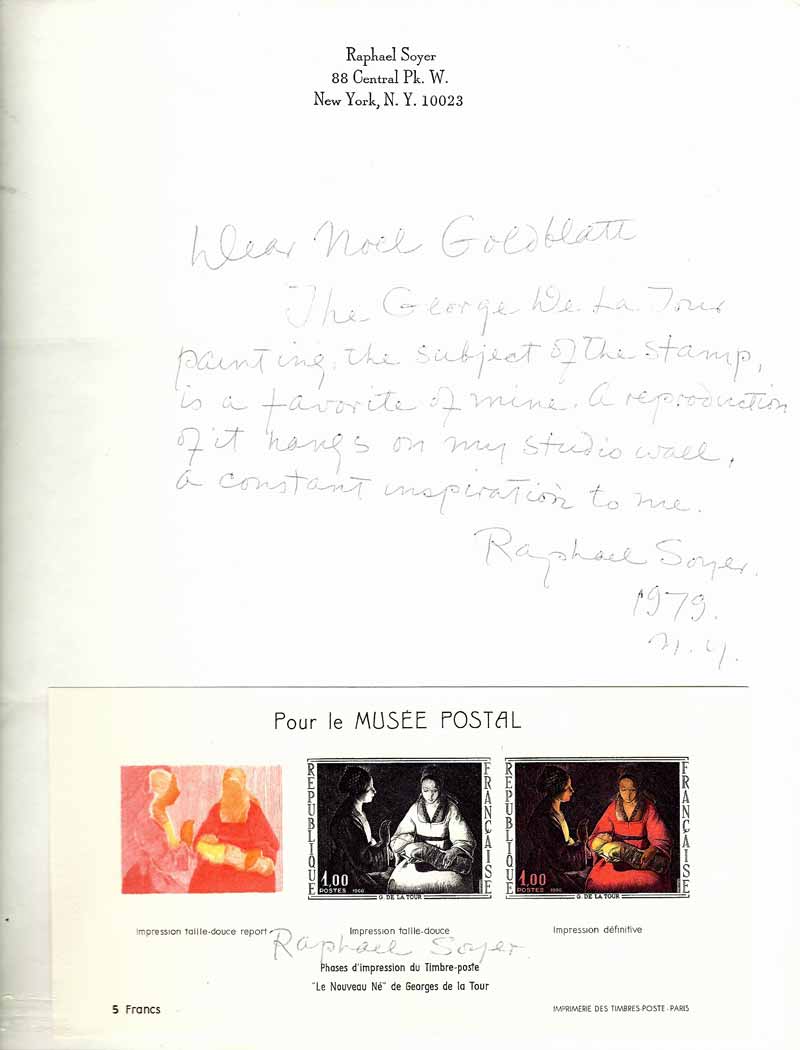 Raphael Soyer
88 Central Pk. W.
New York, N. Y. 10023
Dear Noel Goldblatt
The George De La Tour
painting, the subject of the stamp,
is a favorite of mine. A reproduction
of it hangs on my studio wall,
a constant inspiration to me.
Raphael Soyer.
1979.
N. Y.
Pour le MUSÉE POSTAL
RÉPUBLIQUE
FRANÇAISE
1,00
POSTES 1966
G. DE LA TOUR
RÉPUBLIQUE
FRANÇAISE
1,00
POSTES 1966
G. DE LA TOUR
Impression taille-douce report
Impression taille-douce
Impression définitive
Raphael Soyer.
Phases d'impression du Timbre-poste
"Le Nouveau Né" de Georges de la Tour
5 Francs
IMPRIMERIE DES TIMBRES-POSTE - PARIS